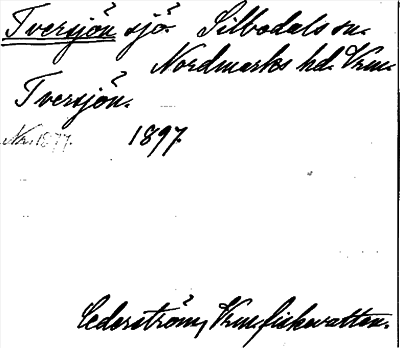 Tversjön sjö. Silbodals sn.
Nordmarks hd. Vrm.
Tversjön.
1897
Cederström, Vrm. fiskevatten.